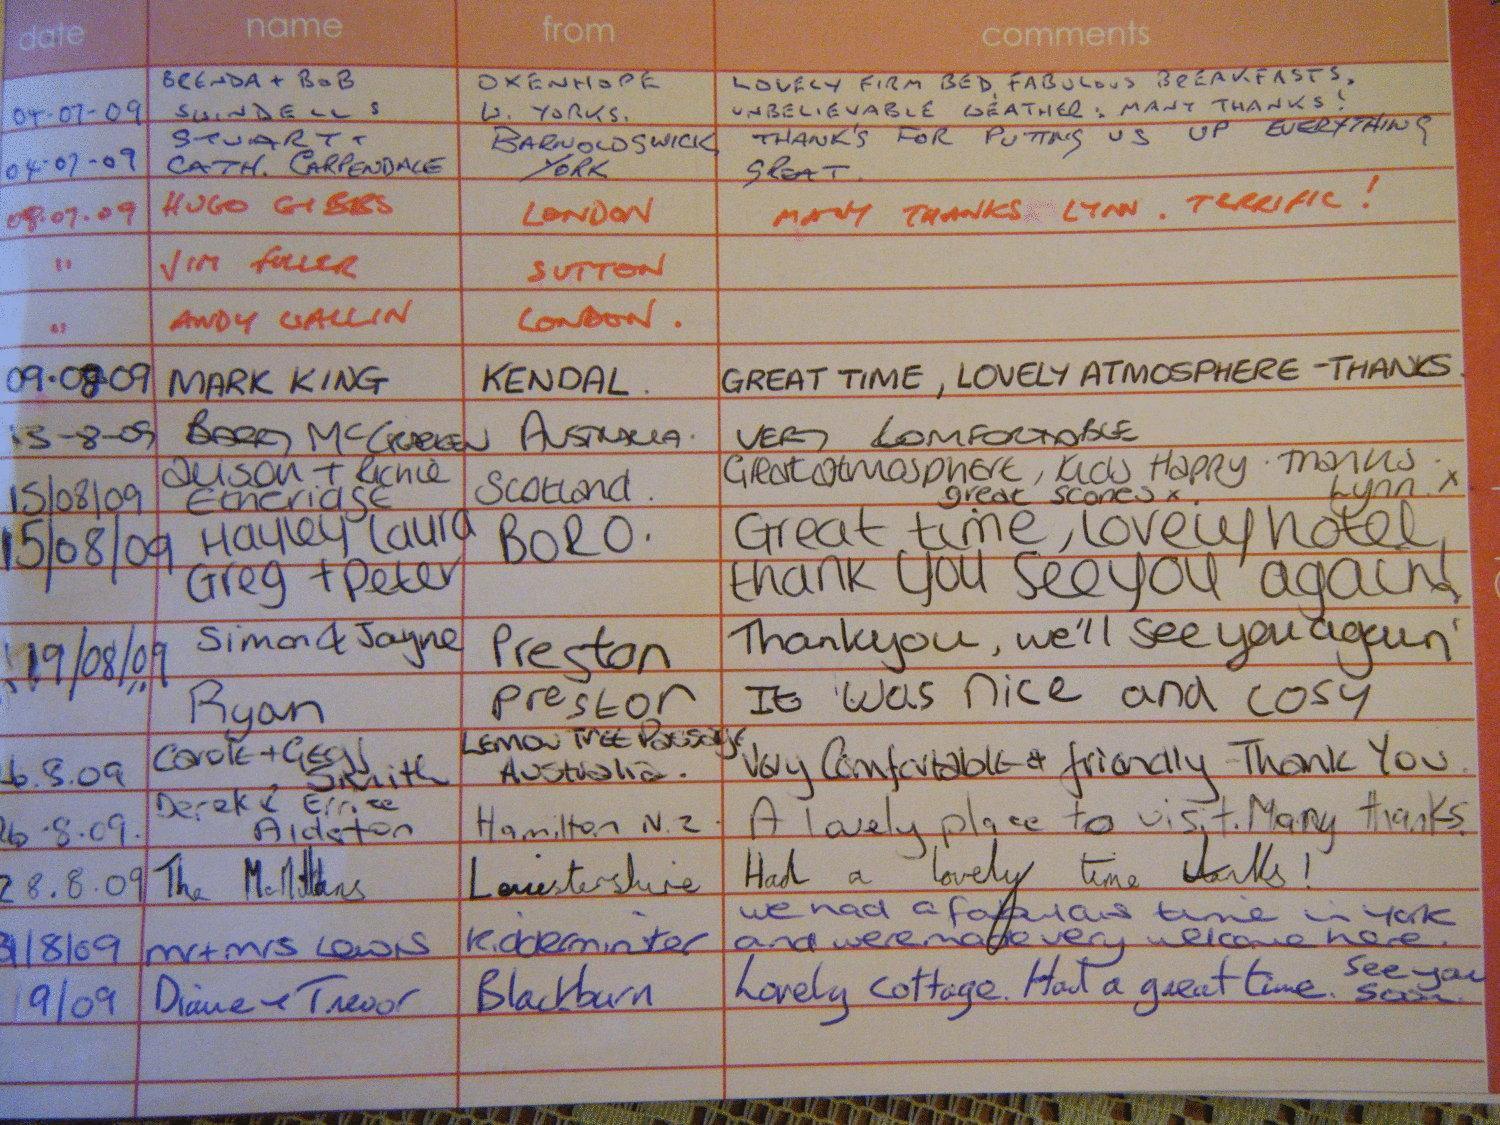 date name from comments
BRENDA + BOB OXENHOPE LOVELY FIRM BED, FABULOUS BREAKFASTS.
04-07-09 SWINDELLS W. YORKS. UNBELIEVABLE WEATHER. MANY THANKS!
STUART + BARNOLDSWICK THANK'S FOR PUTTING US UP EVERYTHING
04-07-09 CATH. CARPENDALE YORK GREAT.
08.07.09 HUGO GIBBS LONDON MANY THANKS LYNN. TERRIFIC!
" JIM FULLER SUTTON
" ANDY WALLIN LONDON.
09.08.09 MARK KING KENDAL. GREAT TIME, LOVELY ATMOSPHERE - THANKS.
13-8-09 BARRY McCRACKEN AUSTRALIA. VERY COMFORTABLE
Alison + Richie Great atmosphere, kids Happy. Thanks
15/08/09 Etheridge Scotland. great scones x. Lynn. x
15/08/09 Hayley Laura BORO. Great time, lovely hotel,
Greg + Peter thank you see you again!
19/08/09 Simon & Jayne Preston Thankyou, we'll see you again!
Ryan Preston It was nice and cosy
CAROLE + Gerry LEMON TREE Passage
26.8.09 Smith Australia. Very Comfortable & friendly - Thank You.
Derek &
26.8.09. Alderton Hamilton N.Z. A lovely place to visit. Many thanks.
28.8.09 The McMillans Leicestershire Had a lovely time thanks!
we had a fabulous time in York
31/8/09 mr + mrs Lewis Kidderminster and were made very welcome here.
9/09 Diane & Trevor Blackburn Lovely cottage. Had a great time. See you
soon.